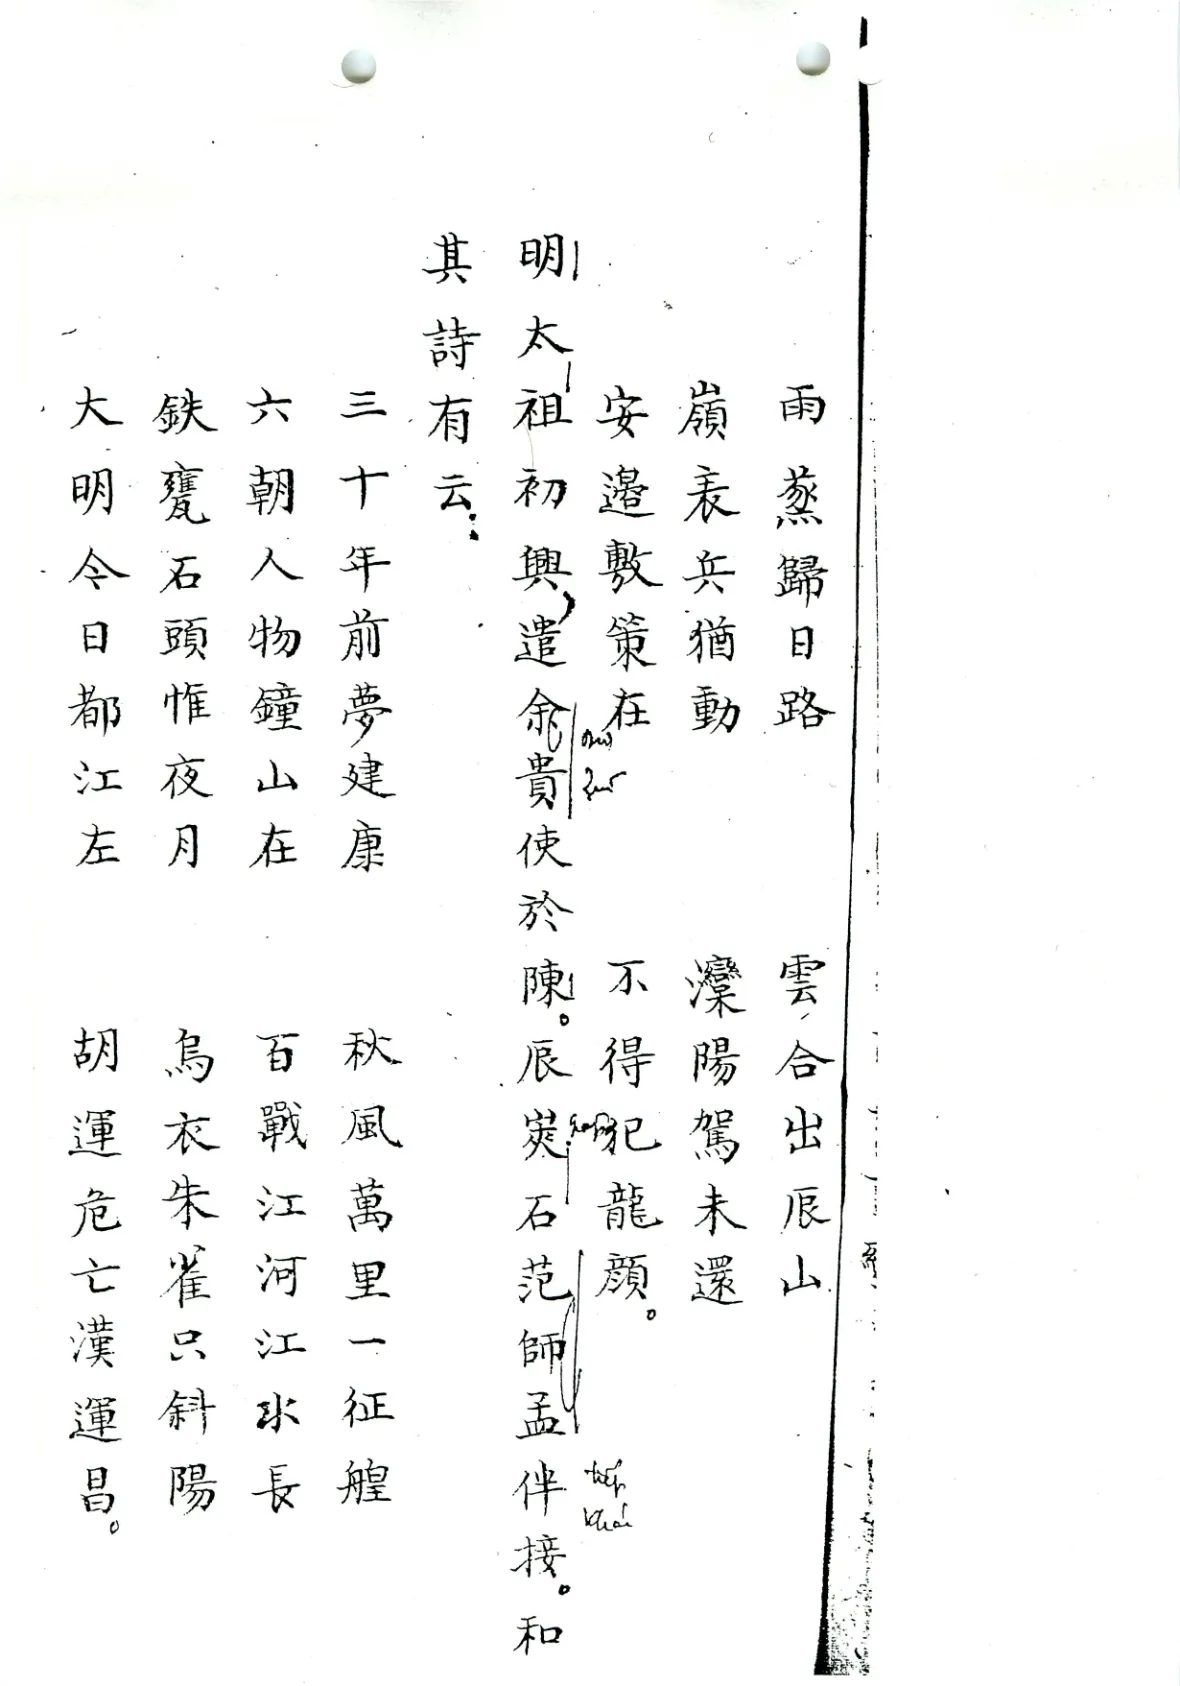 雨蒸歸日路 雲合出辰山
嶺表兵猶動 灤陽駕未還
安邉敷策在 不得犯龍顔。
明太祖初興遣余貴使於陳。辰煑石范師孟伴接。和
其詩有云:
三十年前夢建康 秋風萬里一征艎
六朝人物鐘山在 百戰江河江水長
鉄甕石頭惟夜月 烏衣朱雀只斜陽
大明今日都江左 胡運危亡漢運昌。
tiếp
khái